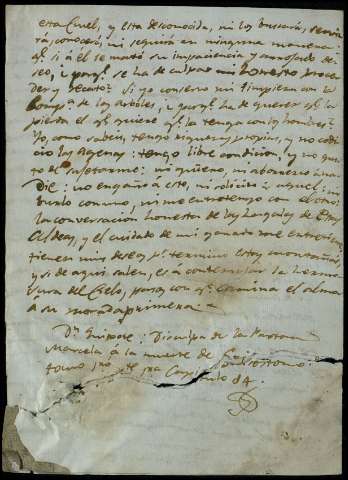 esta cruel, y esta desconocida, ni los buscará, servi
rá, conocerá, ni seguirá en ninguna manera:
q̃ si á él le mató su impaciencia y arrojado de
seo, porq̃ se ha de culpar mi honesto proce
der y recato? Si yo conservo mi limpieza con la
compª de los árboles, porq̃ ha de querer q̃ la
pierda el q̃ quiere q̃ la tenga con los hombres?
Yo, como sabeis, tengo riquezas propias, y no codi
cio las agenas: tengo libre condicion, y no gus
to de sujetarme: ni quiero, ni aborrezco á na
die: no engaño á este, ni solicito á aquel: ni
burlo con uno, ni me entretengo con el otro:
la conversacion honesta de las zagalas de estas
Aldeas, y el cuidado de mis ganados me entretiene:
tienen mis deseos pr. termino estas montañas,
y si de aqui salen, es á contemplar la hermo
sura del Cielo, pasos con q̃ camina el alma
á su morada primera.
Dn. Quixote: Disculpa de la Pastora
Marcela á la muerte de Grisostomo:
tomo pro. pte. pra Capitulo 14.